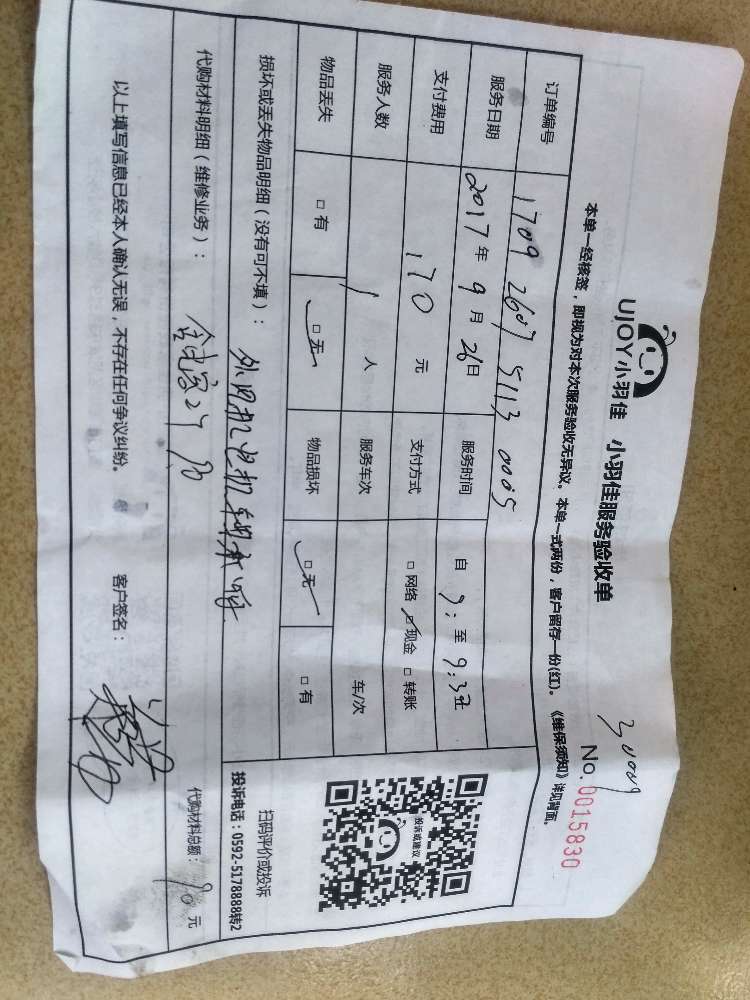 UJOY小羽佳 小羽佳服务验收单
No.0015830
本单一经核签，即视为对本次服务验收无异议。本单一式两份，客户留存一份(红)。《维保须知》详见背面。
订单编号 1709 2607 5113 0005
服务日期 2017年 9月 26日 服务时间 自 9: 至 9:32
支付费用 170 元 支付方式 □ 网络 □ 现金 □ 转账
服务人数 1 人 服务车次 车/次
物品丢失 □ 有 □ 无 物品损坏 □ 无 □ 有
损坏或丢失物品明细（没有可不填）： 外用机电机
代购材料明细（维修业务）：
代购材料总额： 90 元
以上填写信息已经本人确认无误，不存在任何争议纠纷。 客户签名：
投诉或建议
扫码评价或投诉
投诉电话：0592-5178888转2